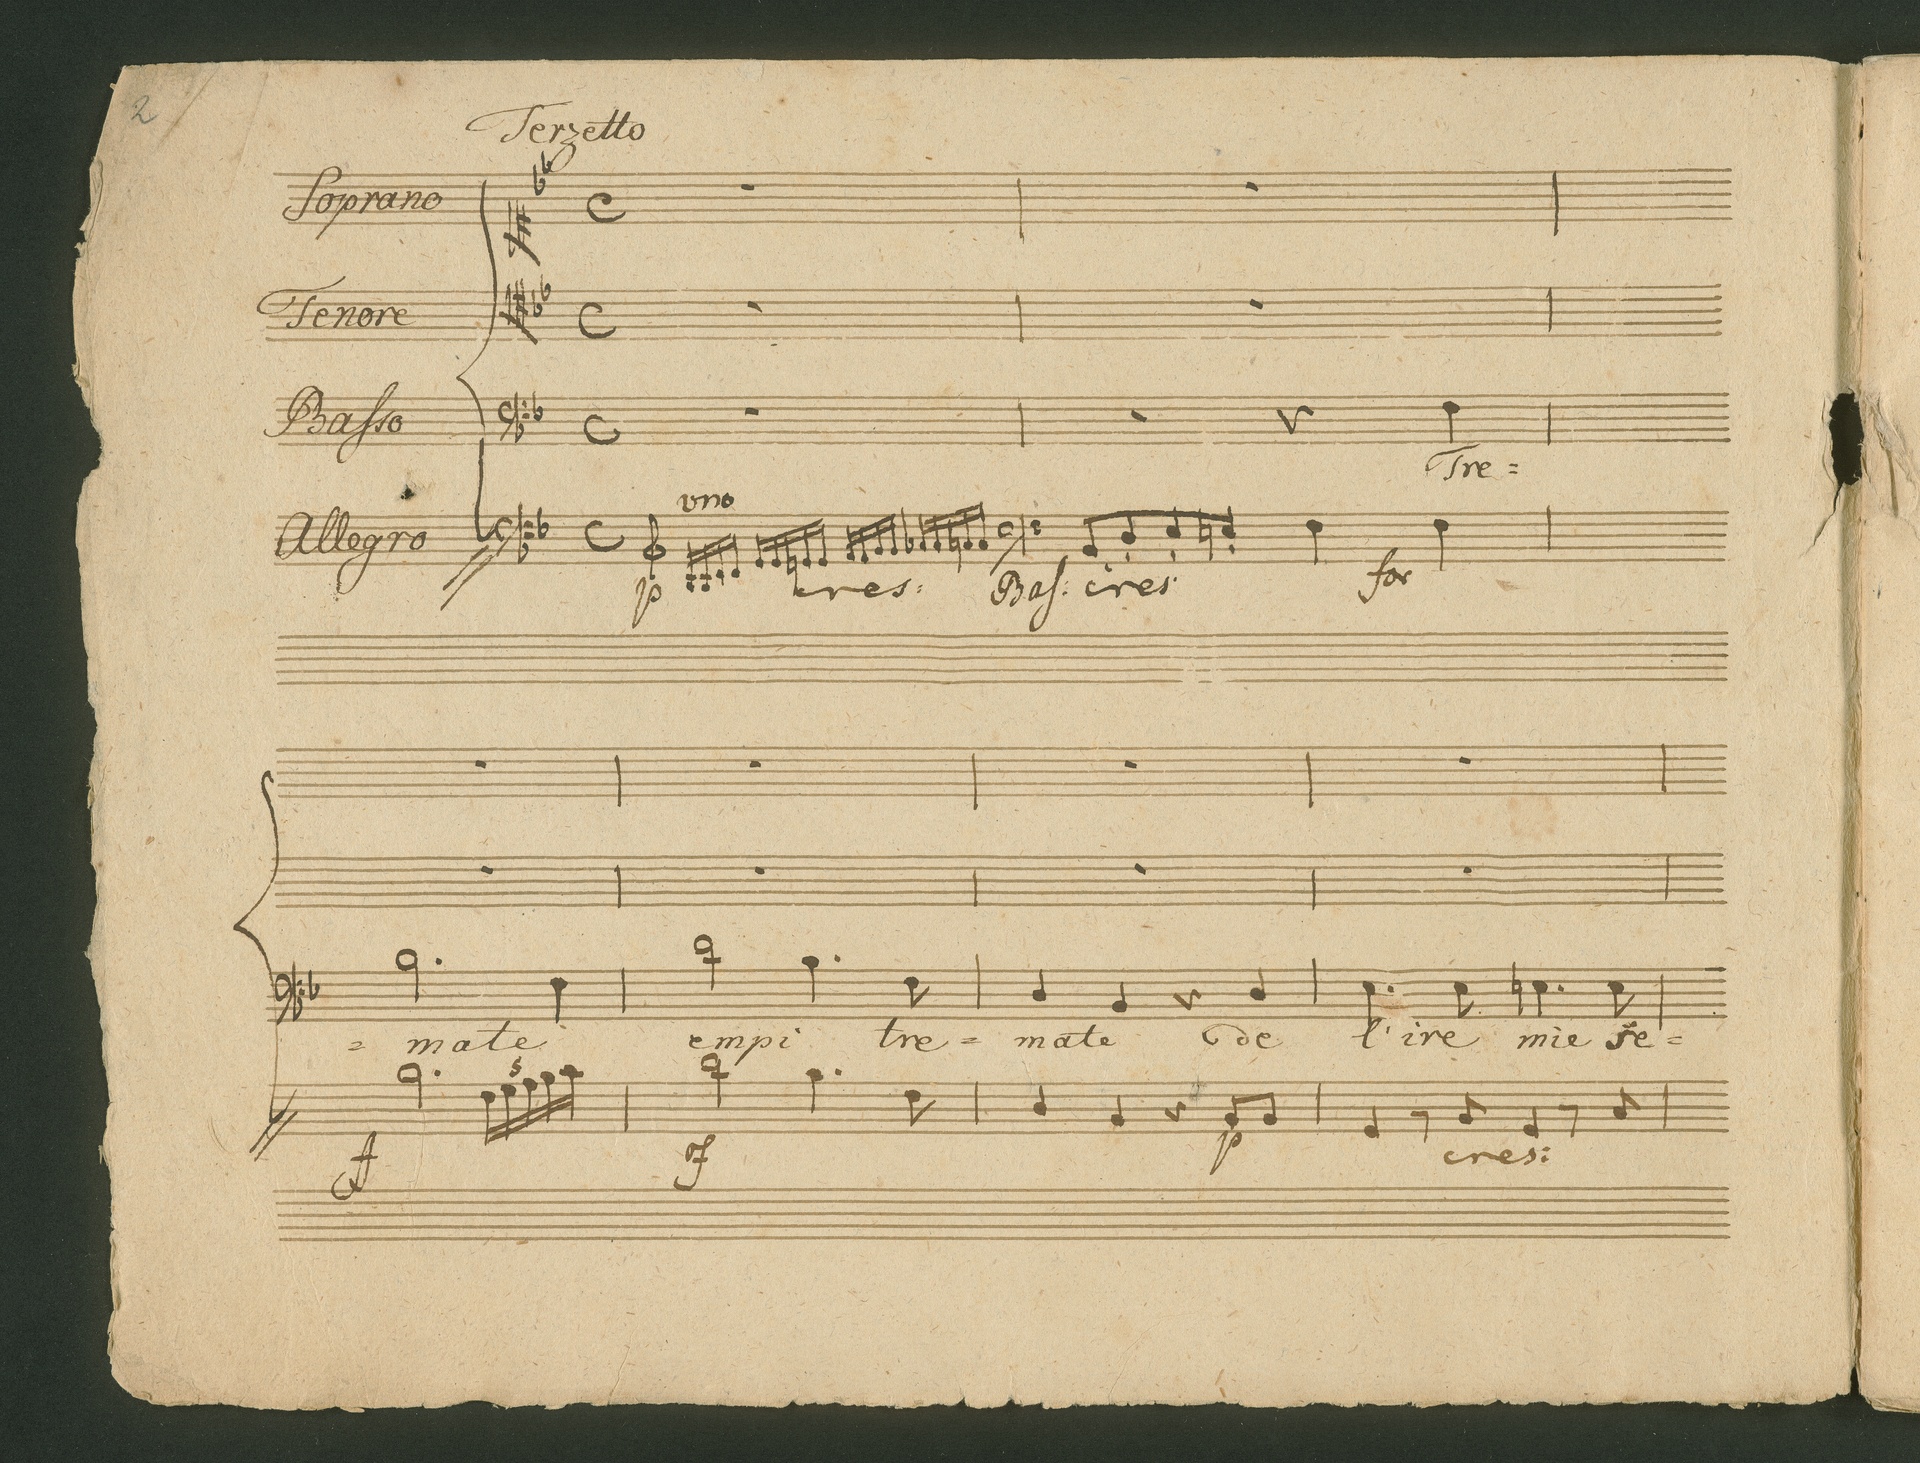 2
Terzetto
Soprano
Tenore
Basso
Tre =
Allegro
vno
p cres: Bas: cres: for
= mate empi tre = mate de l'ire mie se =
5
f sf p cres: